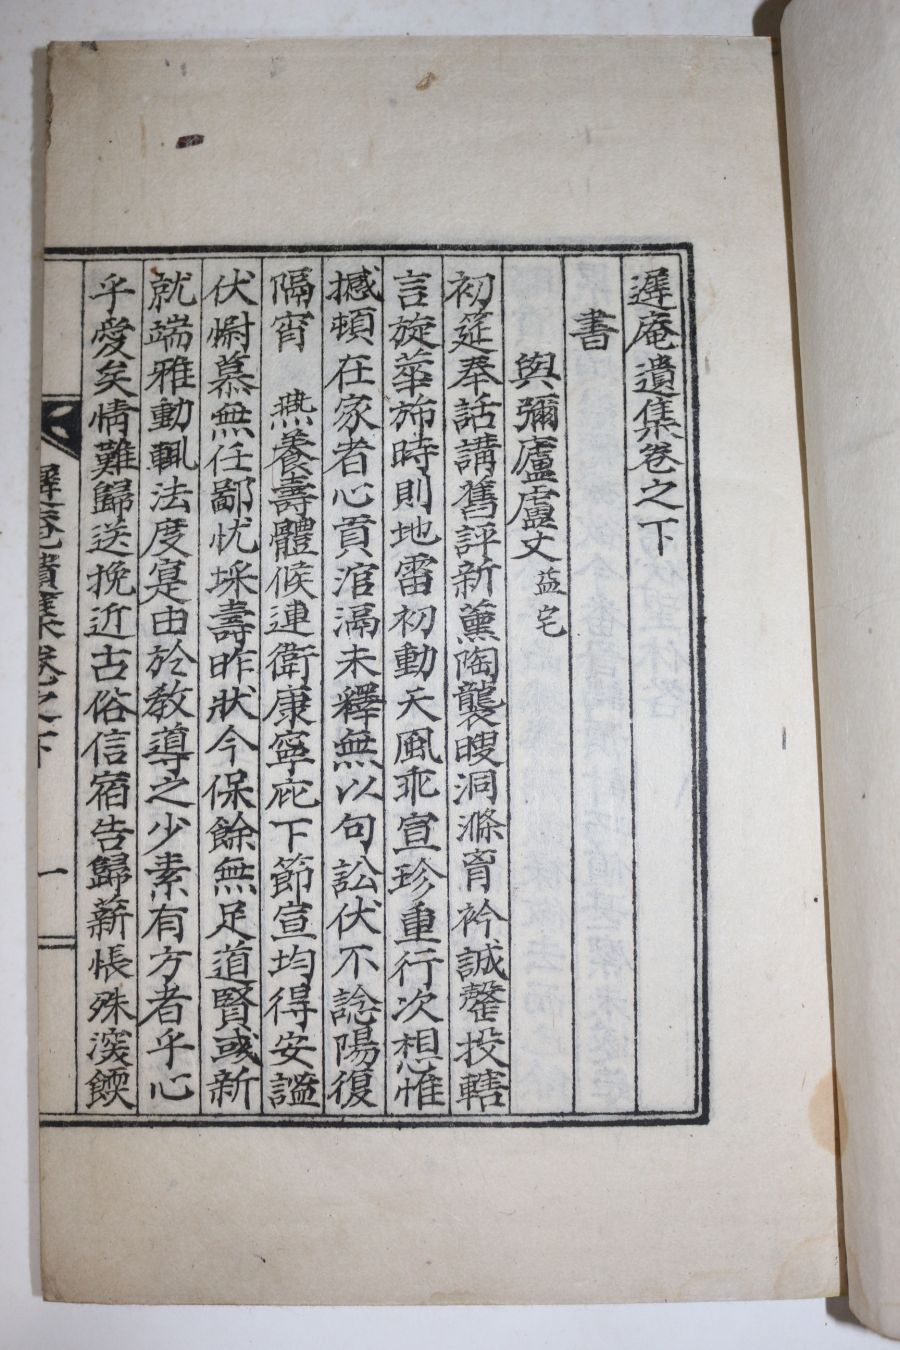 遲庵遺集卷之下
書
與彌廬盧丈 益宅
初筵奉話講舊評新薰陶襲䁬洞滌育衿誠罄投轄
言旋華旆時則地雷初動天風乖宣珍重行次想惟
撼頓在家者心貢涫漹未釋無以句訟伏不諗陽復
隔宵 燕養壽體候連衛康寧庇下節宣均得安謐
伏慰慕無任鄙忱埰壽昨狀今保餘無足道賢彧新
就端雅動輒法度寔由於教導之少素有方者乎心
乎愛矣情難歸送挽近古俗信宿告歸薪悵殊深餪
遲庵遺集卷之下 一